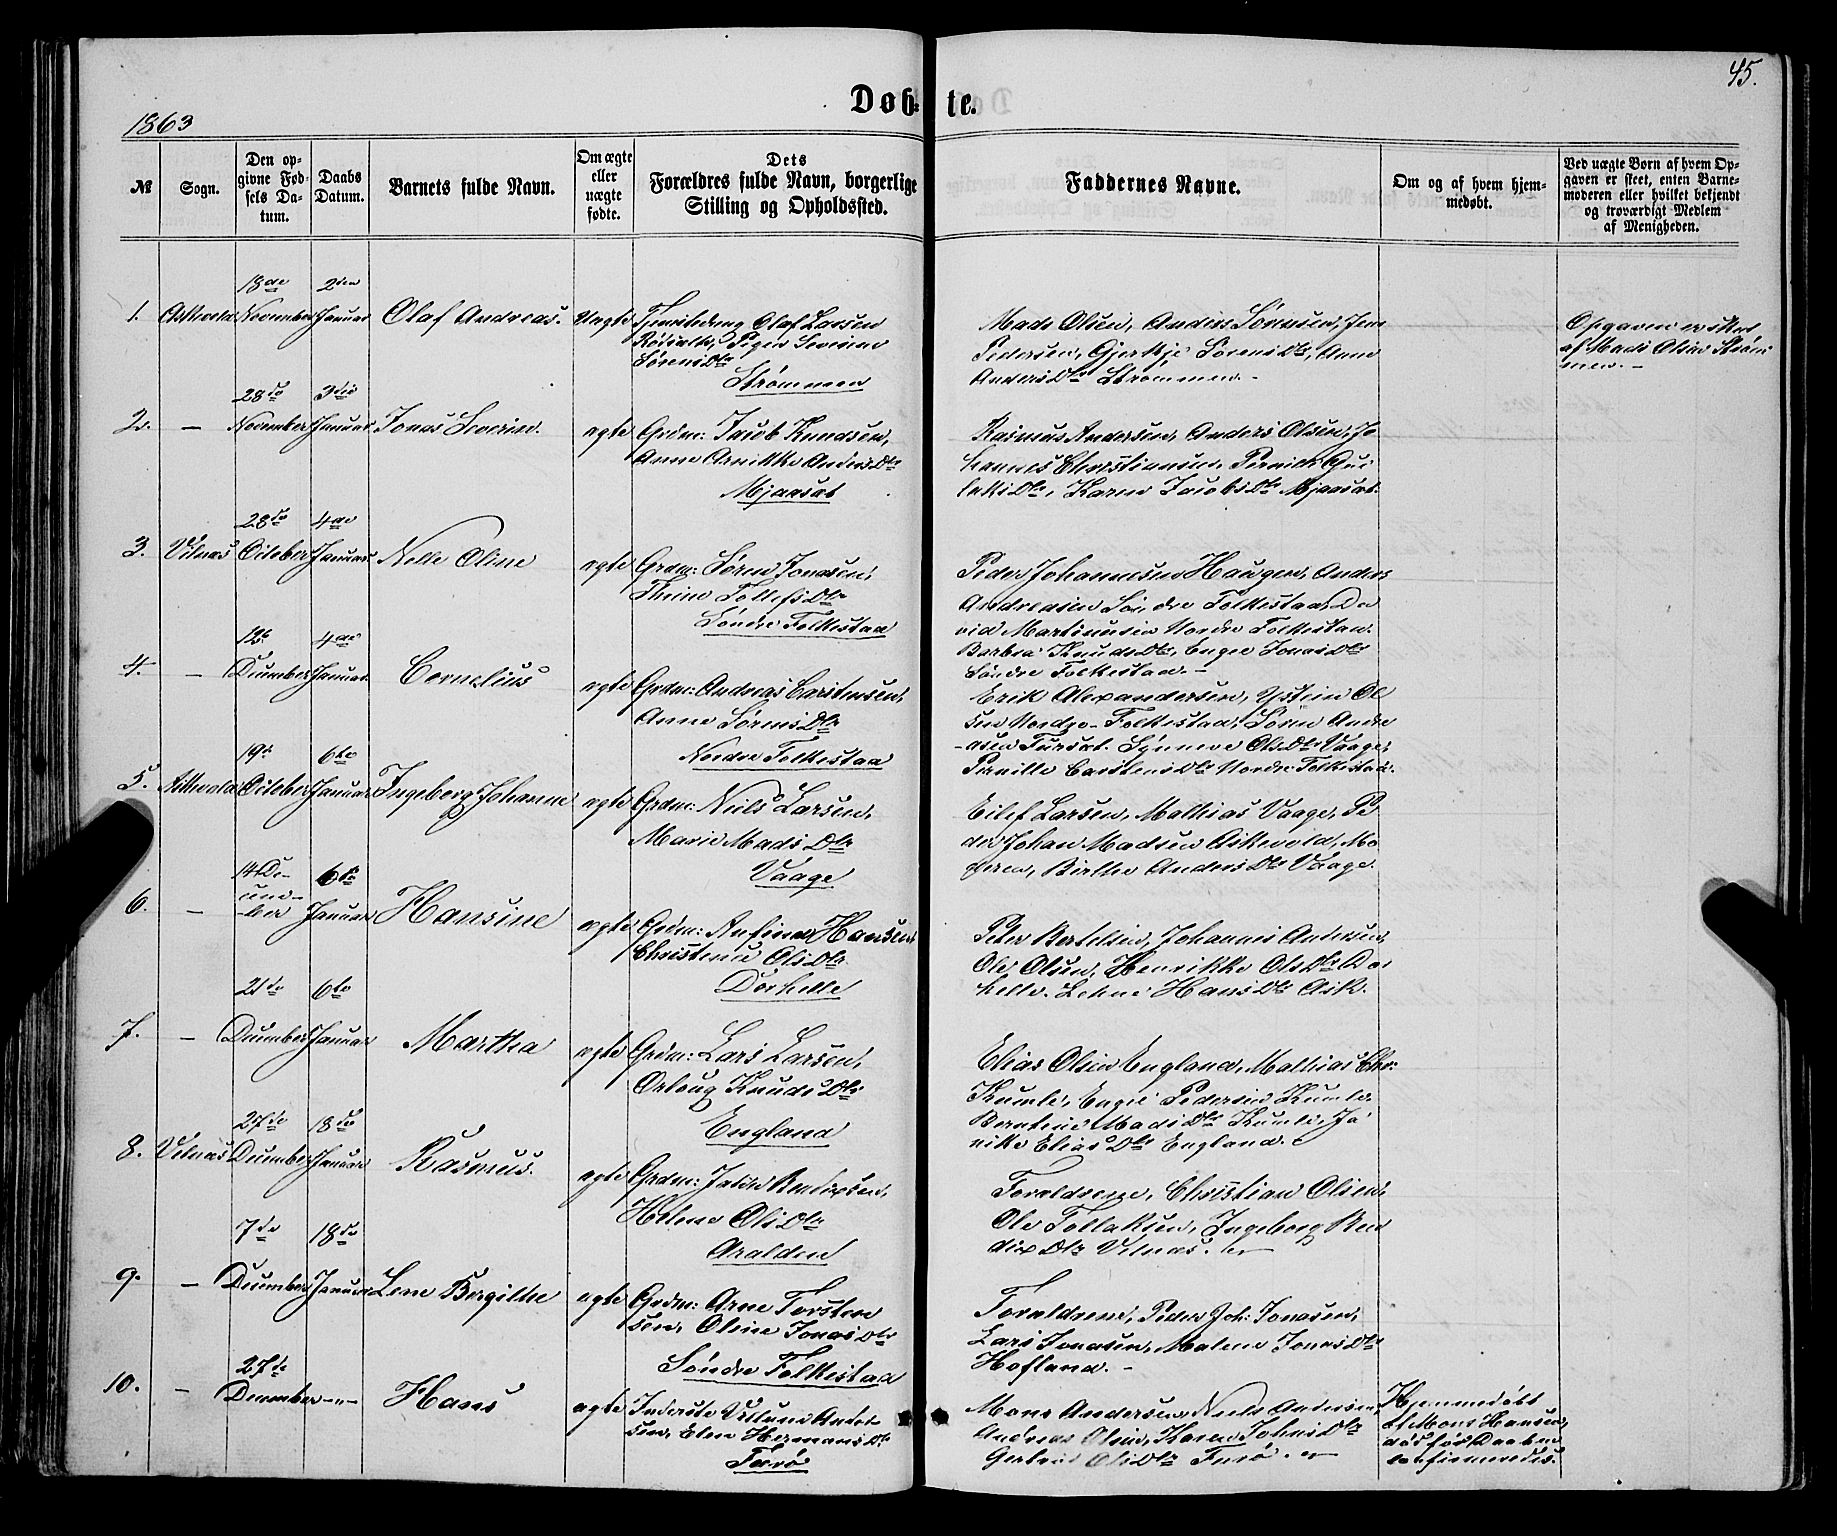 45.
Døb- te.
1863
№
Sogn.
Den op-
givne Fød-
sels Da-
tum.
Daabs
Datum.
Barnets fulde Navn.
Om ægte
eller
uægte
fødte.
Dets
Forældres fulde Navn, borgerlige
Stilling og Opholdssted.
Faddernes Navne.
Om og af hvem hjem-
medøbt.
Ved uægte Børn af hvem Op-
gaven er skeet, enten Barne-
moderen eller hvilket bekjendt
og troværdigt Medlem
af Menigheden.
1. Askevold 18de November 2den Januar Olaf Andreas. Uægte Tjenestedreng Olaf Larsen
Pigen Severine
SørensDtr
Strømmen
Mads Olsen, Anders Sørensen, Jens
Pedersen, SørensDtr, Anne
AndersDtr Strømmen. -
Opgaven er skeet
af Mads Olsen Strøm
men. -
2. - 28de November 3die Januar Jonas Severin. ægte Grdm: Jacob Knudsen,
Anne AndersDtr
Mjaaset
Rasmus Andersen, Anders Olsen, Jo
hannes Christiansen,
Karen JacobsDtr Mjaaset.
3. Vilnæs 28de October 4de Januar Nelle Oline ægte Grdm: Søren Jonasen,
TollefsDtr
Søndre Folkestad
Peder Johannesen Haugen, Anders
Andreasen Søndre Folkestad, Da
vid Martinusen Nordre Folkestad.
Barbra KnudsDtr, Engel JonasDtr
Søndre Folkestad. -
4. - 12te December 4de Januar Cornelius ægte Grdm: Andreas Carstensen,
Anne SørensDtr
Nordre Folkestad
Erik Alexandersen, Ol
sen Nordre Folkestad, Søren Andre
asen Synneve OlsDtr Vaage,
Pernille CarstensDtr Nordre Folkestad.
5. Askevold 19de October 6te Januar Ingeborg Johanne ægte Grdm: Niels Larsen,
Marie MadsDtr
Vaage
Eilef Larsen, Mathias Vaage, Pe
der Johan Madsen Askevold, Mo
deren, Birthe AndersDtr Vaage.
6. - 14 De-
cem-
ber 6te Januar Hansine ægte Grdm: Anfind Hansen,
OlsDtr
Dorhelle
Peter Bertelsen, Johannes Andersen,
Ole Olsen, Henrikke OlsDtr Dor
helle. Lehne HansDtr Ask.
7. - 21de December 6te Januar Martha ægte Grdm: Lars Larsen,
KnudsDtr
England
Elias Olsen England, Mathias Chr:
Kumle, Engel Pedersen Kumle
Berntine MadsDtr Kumle, Ja
nike EliasDtr England.
8. Vilnæs 27de December 18de Januar Rasmus. ægte Grdm: Bendixsen,
Helene OlsDtr
Aralden
Forældrene, Christian Olsen,
Ole Tollaksen, Ingeborg Ben
dixDtr Vilnæs.
9. - 7de December 18de Januar Lene Bergithe ægte Grdm: Arne Torsten
sen, Oline JonasDtr
Søndre Folkestad
Forældrene, Peder Joh: Jonasen,
Lars Jonasen, Malene JonasDtr
Hofland. -
10. - 27de December -"- Hans ægte Inderste Anders
sen, Elen HermansDtr
Færø
Mons Andersen, Niels Andersen,
Andreas Olsen, Karen JohnsDtr
OlsDtr Færø.
Hjemmedøbt
af Mons Hansen,
død før Daaben
confirmeredes.